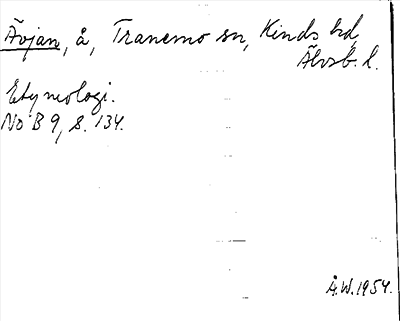 Ävjan, å, Tranemo sn, Kinds hd,
Älvsb. l.
Etymologi.
NoB 9, s. 134.
Å.W. 1954.